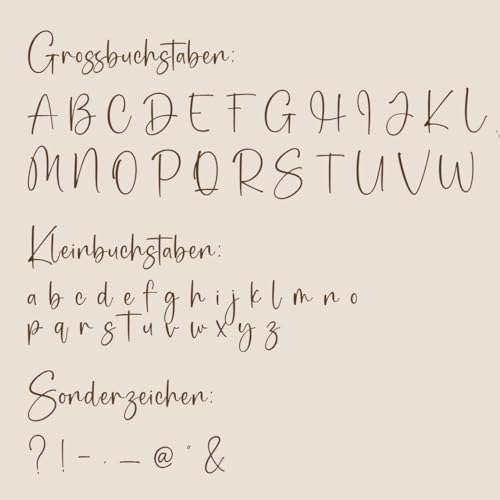 Grossbuchstaben:
A B C D E F G H I J K L
M N O P Q R S T U V W
Kleinbuchstaben:
a b c d e f g h i j k l m n o
p q r s t u v w x y z
Sonderzeichen:
? ! - . _ @ ' &